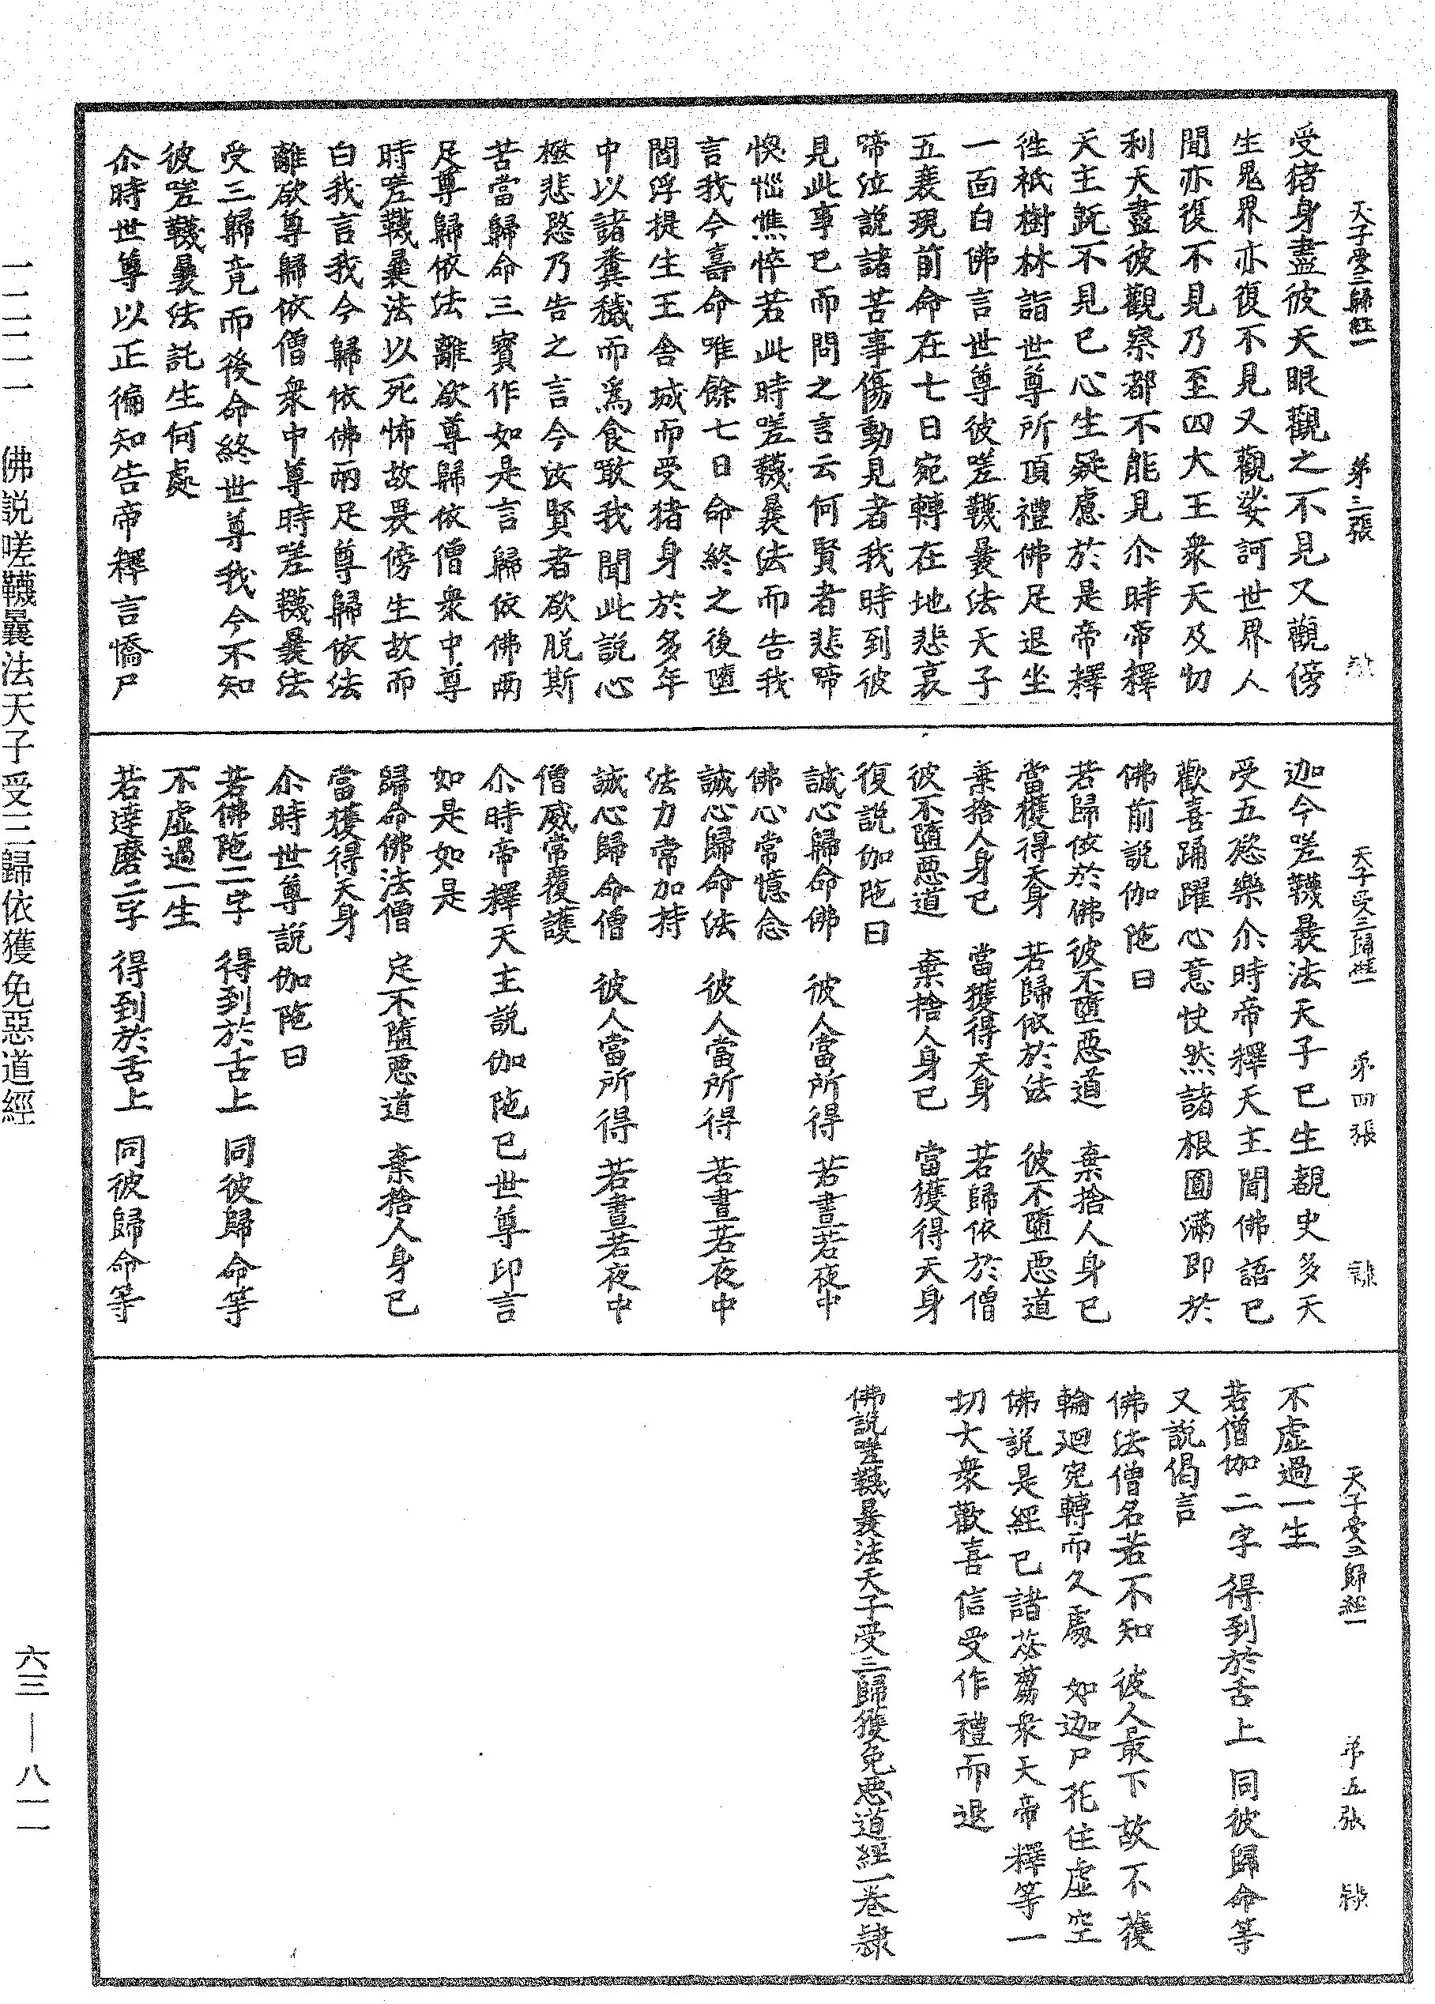 天子受三歸經一 第三張 隷
受猪身盡彼天眼觀之不見又觀傍
生鬼界亦復不見又觀娑訶世界人
間亦復不見乃至四大王衆天及忉
利天盡彼觀察都不能見尒時帝釋
天主既不見已心生疑慮於是帝釋
徃祇樹林詣世尊所頂禮佛足退坐
一面白佛言世尊彼嗟韈曩法天子
五衰現前命在七日宛轉在地悲哀
啼泣說諸苦事傷動見者我時到彼
見此事已而問之言云何賢者悲啼
懊惱憔悴若此時嗟韈曩法而告我
言我今壽命唯餘七日命終之後墮
閻浮提生王舍城而受猪身於多年
中以諸糞穢而爲食噉我聞此說心
極悲愍乃告之言今汝賢者欲脫斯
苦當歸命三寶作如是言歸依佛兩
足尊歸依法離欲尊歸依僧衆中尊
時嗟韈曩法以死怖故畏傍生故而
白我言我今歸依佛兩足尊歸依法
離欲尊歸依僧衆中尊時嗟韈曩法
受三歸竟而後命終世尊我今不知
彼嗟韈曩法託生何處
尒時世尊以正徧知告帝釋言憍尸
天子受三歸經一 第四張 隷
迦今嗟韈曩法天子已生覩史多天
受五慾樂尒時帝釋天主聞佛語已
歡喜踊躍心意快然諸根圓滿即於
佛前說伽陁曰
若歸依於佛 彼不墮惡道 棄捨人身已
當獲得天身 若歸依於法 彼不墮惡道
棄捨人身已 當獲得天身 若歸依於僧
彼不墮惡道 棄捨人身已 當獲得天身
復說伽陁曰
誠心歸命佛 彼人當所得 若晝若夜中
佛心常憶念
誠心歸命法 彼人當所得 若晝若夜中
法力常加持
誠心歸命僧 彼人當所得 若晝若夜中
僧威常覆護
尒時帝釋天主說伽陁已世尊印言
如是如是
歸命佛法僧 定不墮惡道 棄捨人身已
當獲得天身
尒時世尊說伽陁曰
若佛陁二字 得到於舌上 同彼歸命等
不虛過一生
若達磨二字 得到於舌上 同彼歸命等
天子受三歸經一 第五張 隷
不虛過一生
若僧伽二字 得到於舌上 同彼歸命等
又說偈言
佛法僧名若不知 彼人最下故不獲
輪廻宛轉而久處 如迦尸花住虛空
佛說是經已諸苾蒭衆天帝釋等一
切大衆歡喜信受作禮而退
佛說嗟韈曩法天子受三歸獲免惡道經一卷 隷
一二二一 佛説嗟韈曩法天子受三歸依獲免惡道經
六三—八一一